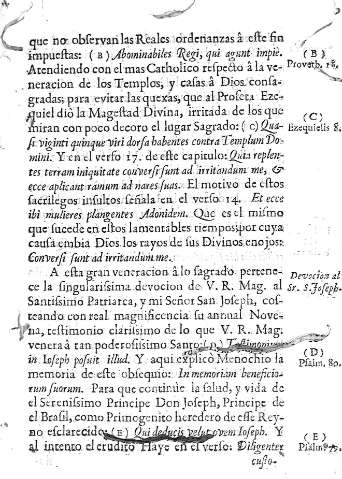 que no observan las Reales ordenanzas à este fin
impuestas: (B) Abominabiles Regi, qui agunt impie.
Atendiendo con el mas Catholico respecto à la ve-
neracion de los Templos, y casas à Dios consa-
gradas; para evitar las quexas, que al Profeta Eze-
quiel diò la Magestad Divina, irritada de los que
miran con poco decoro el lugar Sagrado: (C) Qua-
si viginti quinque viri dorsa habentes contra Templum Do-
mini. Y en el verso 17. de este capitulo: Quia replen-
tes terram iniquitate conversi sunt ad irritandum me, &
ecce aplicant ramum ad nares suas. El motivo de estos
sacrilegos insultos señala en el verso 14. Et ecce
ibi mulieres plangentes Adonidem. Que es el mismo
que sucede en estos lamentables tiempos por cuya
causa embia Dios los rayos de sus Divinos enojos:
Conversi sunt ad irritandum me.
A esta gran veneracion à lo sagrado pertene-
ce la singularissima devocion de V. R. Mag. al
Santissimo Patriarca, y mi Señor San Joseph, cos-
teando con real magnificencia su annual Nove-
na, testimonio clarissimo de lo que V. R. Mag.
venera à tan poderosissimo Santo: (D) Testimonium
in Ioseph posuit illud. Y aqui explicò Menochio la
memoria de este obsequio: In memoriam beneficio-
rum suorum. Para que continúe la salud, y vida de
el Serenissimo Principe Don Joseph, Principe de
el Brasil, como Primogenito heredero de esse Rey-
no esclarecido: (E) Qui deducis velut ovem Ioseph. Y
al intento el erudito Haye en el verso: Diligenter
custo-
(B)
Proverb. 18.
(C)
Ezequielis 8.
Devocion al
Sr. S. Joseph.
(D)
Psalm. 80.
(E)
Psalm. 79.